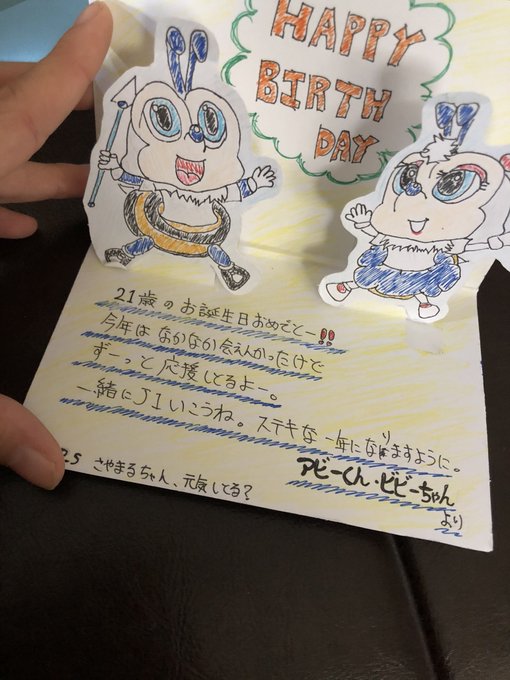 HAPPY
BIRTH
DAY
21歳のお誕生日おめでとー!!
今年はなかなか会えんかったけど
ずーっと応援してるよー。
一緒にJ1いこうね。ステキな一年になりますように。
アビーくん・ビビーちゃん
より
P.S さやまるちゃん、元気してる?